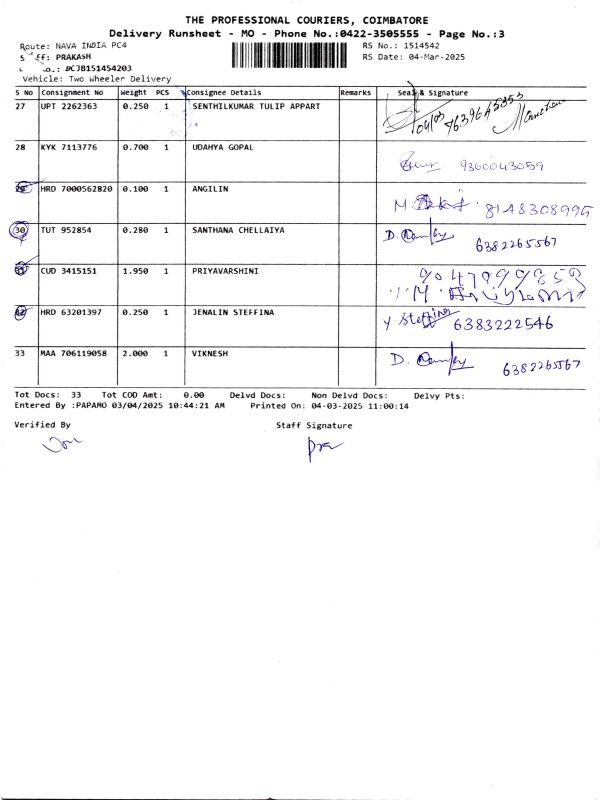 THE PROFESSIONAL COURIERS, COIMBATORE
Delivery Runsheet - MO - Phone No.:0422-3505555 - Page No.:3
Route: NAVA INDIA PC4 RS No.: 1514542
PRAKASH RS Date: 04-Mar-2025
DCJB151454203
Vehicle: Two Wheeler Delivery
S No Consignment No Weight PCS Consignee Details Remarks Seal & Signature
27 UPT 2262363 0.250 1 SENTHILKUMAR TULIP APPART
28 KYK 7113776 0.700 1 UDAHYA GOPAL 9360043059
29 HRD 7000562820 0.100 1 ANGILIN 8148308995
30 TUT 952854 0.280 1 SANTHANA CHELLAIYA 6382265567
31 CUD 3415151 1.950 1 PRIYAVARSHINI
32 HRD 63201397 0.250 1 JENALIN STEFFINA Y Steffina 6383222546
33 MAA 706119058 2.000 1 VIKNESH 6382265567
Tot Docs: 33 Tot COD Amt: 0.00 Delvd Docs: Non Delvd Docs: Delvy Pts:
Entered By :PAPAMO 03/04/2025 10:44:21 AM Printed On: 04-03-2025 11:00:14
Verified By Staff Signature